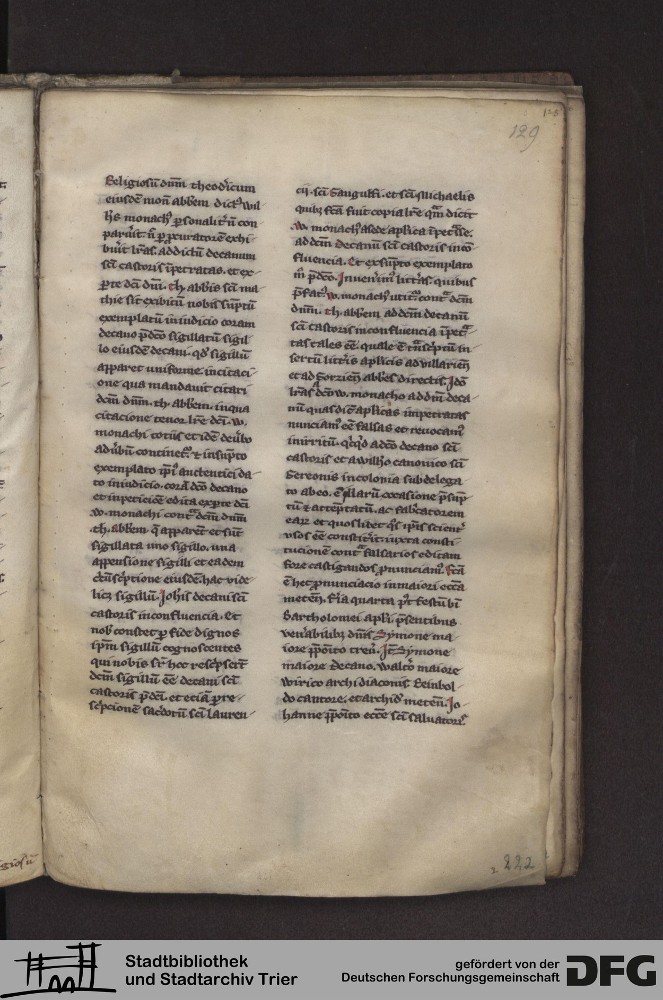 129
Religiosū dnm̄ theodˈicum
eiusdē mon̄ abbem̄ dictꝰ wil
hs monachꝰ ꝑsonalitˈ ū con
exhi
buˈit lrās. ad dictū decanum
scī castoris īpetratas. et ex
ꝑte dc̄i dnī. th. abbˈis scī ma
thie sit exibitū nobˈ sūptū
exemplatū in iudicio coram
decano p̄dc̄o sigillatū sigil
lo eiusdē decani. qd' sigillū
apparet uniforme in citaci
one qua mandauit citari
dcm̄ dnm̄. th. abbem̄. in qua
citacione tenor lrē dc̄i. w.
monachi totus et idē de uˈbo
ad uˈbū continetˈ. ⁊ in sūpto
exemplato ip̄iˀ autentici da
to in iudicio. corā dc̄o decano
et in peticiōe edita ex ꝑte dc̄i
w. monachi contˈ dcm̄ dnm̄
.th. abbem̄. q̄ apparēt et sūt
sigillata uno sigillo. una
appensione sigilli et eadem
eiusdē. hac vide
licꝫ sigillū. Johˈis decani scī
castoris in confluencia. Et
nobˈ constet ꝑ fide dignos
ip̄m sigillū cognoscentes
qui nobis sˈr hoc rescˈpserˈt
dcm̄ sigillū ēe decani scī
castoris p̄dc̄i. et eciā ꝑ re
scˈpcionē sacˈdotū scī lauren
cij. scī Gangulfi. et scī Michaelis
quibꝫ fcā fuit copia lrē quā dicit
.w. monachꝰ a sede aplˈica īpetˈsse.
ad dcm̄ decanū scī castoris in co
fluencia. Et ex sūpto exemplato
p̄dc̄o. Inuenimˀ littˈas. quibus
p̄fatꝰ. w. monachꝰ utitˈ. contˈ dcm̄
dnm̄. th. abbem̄. ad dcm̄ decanū
scī castoris in confluencia īpetˈ
tas tales ēe. quale ē tˈnscˈptū in
sertū littˈis aplˈicis ad villarien̄
et ad Gorzien̄ abbˈes directis. Jdō
lrās dc̄o. w. monacho ad dnm̄ deca
nū quas dicˈ aplˈicas impetratas
nunciamꝰ ēe falsas et reuocamꝰ
in irritū. qꝗd a dc̄o decano scī
castoris et a willˈo canonico scī
Gereonis in colonia subdelega
to ab eo. illarū occasione p̄sūp
tū ⁊ acceptatū. ac fabricatorem
earꝫ et quoslibet qˈ ip̄is scientˈ
vsos ēe constitˈit. iuxta consti
tucionē contˈ falsarios editam
fore castigandos pˈnunciamꝰ. Fcā
ē hec pˈnunciacio in maiori ecc̄a
meten̄. Fˈia quarta pˀt Festū bˈi
Bartholomei aplˈi. p̄sentibus
venˈabilibꝫ dnīs. Symone ma
iore pˈpoīto treū. Jt̄ Symone
maiore decano. waltˈo maiore
wirico archidiaconis. Reinbol
do cantore. et archid' meten̄. Jo
hanne pˈpoīto ecc̄e scī saluatorˈ.
222
Stadtbibliothek
und Stadtarchiv Trier
gefördert von der
Deutschen Forschungsgemeinschaft
DFG